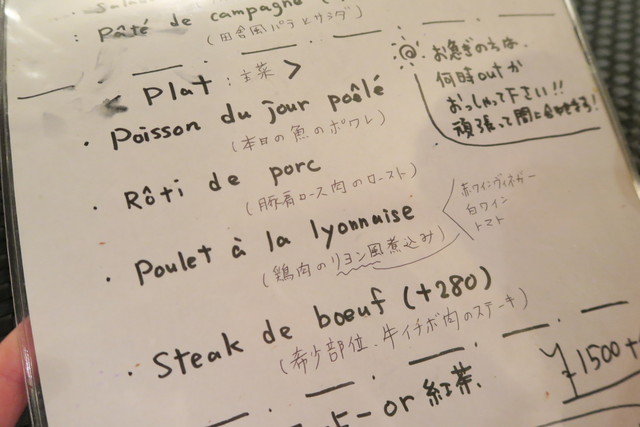 : Pâté de campagne (
(田舎風パテとサラダ)
Plat : 主菜 >
• Poisson du jour poêlé
(本日の魚のポワレ)
• Rôti de porc
(豚肩ロース肉のロースト)
• Poulet à la lyonnaise
(鶏肉のリヨン風煮込み)
赤ワインヴィネガー
白ワイン
トマト
• Steak de bœuf (+280)
(希少部位、牛イチボ肉のステーキ)
ー or 紅茶、
¥1500+
お急ぎの方は、
何時outか
おっしゃって下さい!!
頑張って間に合わせます!